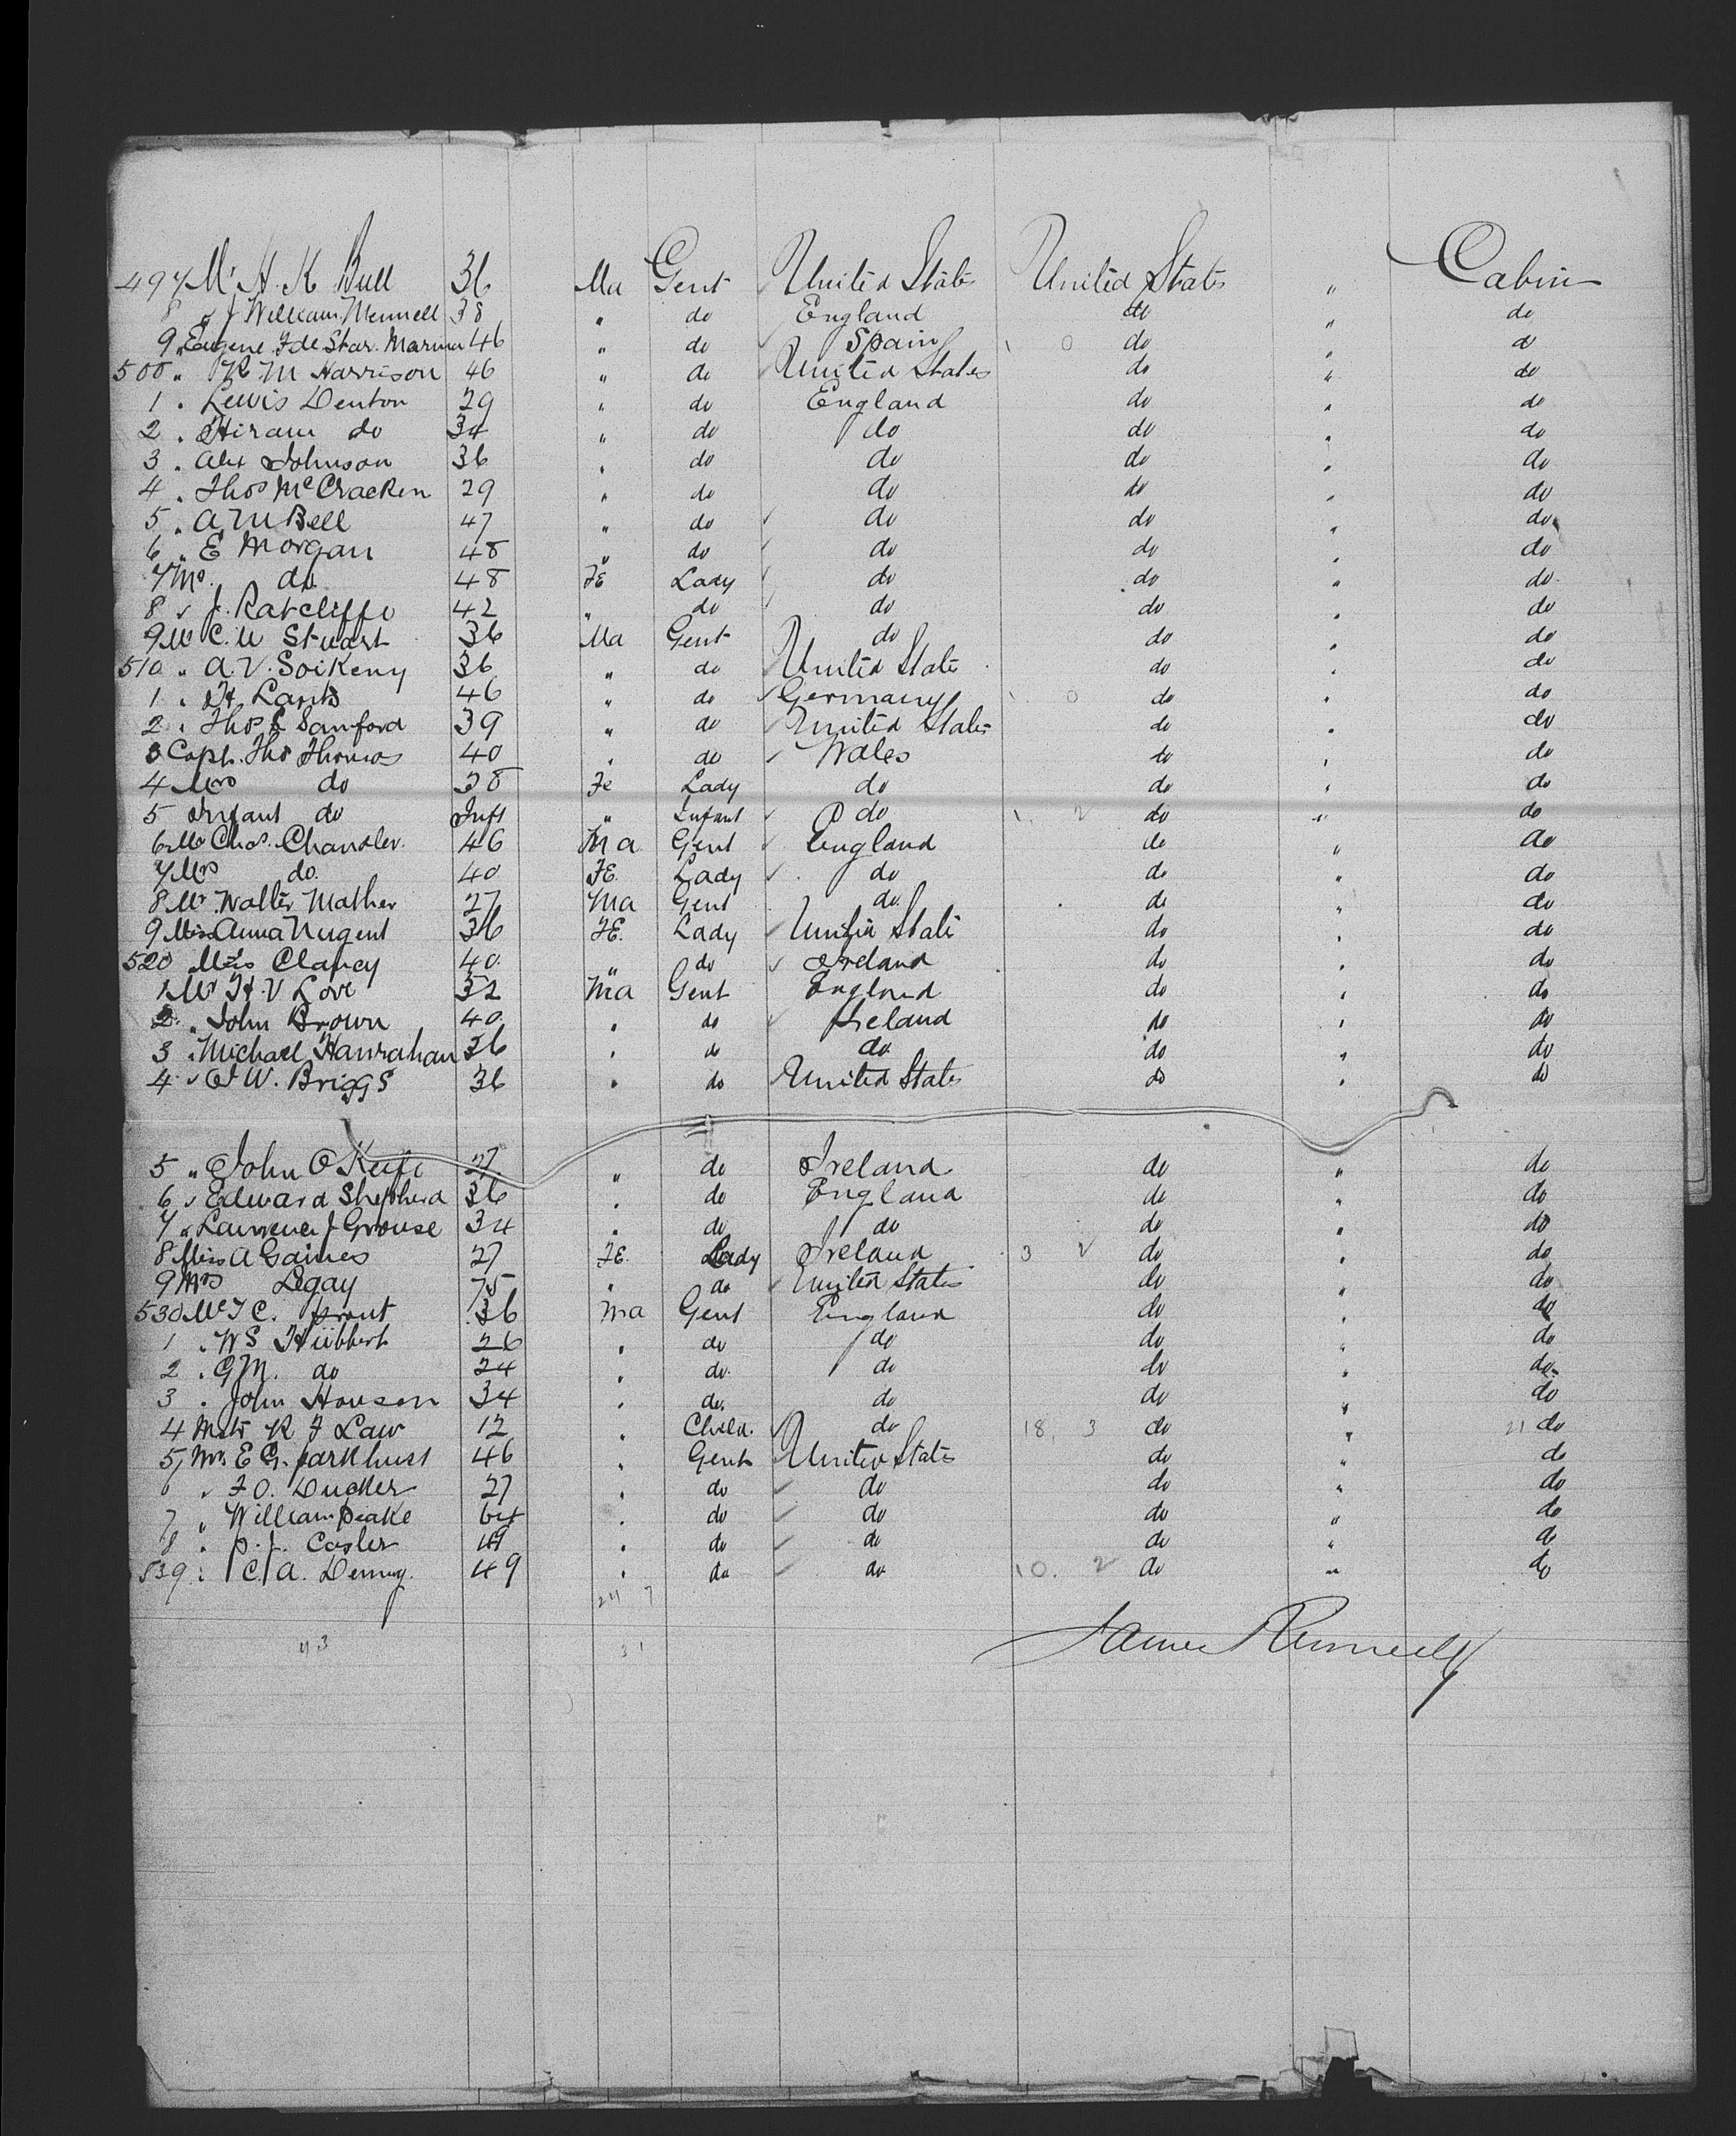 497 Mr H. K Bull 36 Ma Gent United States United States " Cabin
8 " J William Mennell 38 " do England do " do
9 " Eugene F de Star. Marina 46 " do Spain 0 do " do
500 " R M Harrison 46 " do United States do " do
1 " Lewis Denton 29 " do England do " do
2 " Hiram do 34 " do do do " do
3 " Alex Johnson 36 " do do do " do
4 " Thos McCracken 29 " do do do " do
5 " A M Bell 47 " do do do " do
6 " E Morgan 48 " do do do " do
7 Ms. do 48 FE Lady do do " do
8 " J. Ratcliffe 42 " do do do " do
9 Mr C. W Stuart 36 Ma Gent do do " do
510 " A. V. Soikeny 36 " do United State do " do
1 " H. Lants 46 " do Germany 0 do " do
2 " Thos S Sanford 39 " do United States do " do
3 Capt. Tho Thomas 40 " do Wales do " do
4 Mrs do 38 Fe Lady do do " do
5 Infant do Inft " Infant do 1. 2 do " do
6 Mr Chas. Chandler. 46 Ma Gent England do " do
7 Mrs do. 40 FE. Lady do do " do
8 Mr Walter Mather 27 Ma Gent do. do " do
9 Miss Anna Nugent 36 FE. Lady United State do " do
520 Miss Clancy 40. " do Ireland do " do
1 Mr H. V Love 32 Ma Gent England do " do
2 " John Brown 40. " do Ireland do " do
3 " Michael Hanrahan 36 " do do do " do
4 " J W. Briggs 36 " do United States do " do
5 " John O Keife 27 " do Ireland do " do
6 " Edward Shepherd 36 " do England do " do
7 " Lawrence J Grouse 34 " do do do " do
8 Miss A Gaines 27 FE. Lady Ireland 3 2 do " do
9 Mrs Legay 75 " do United States do " do
530 Mr T C. Prout 36 Ma Gent England do " do
1 " W S Hubbert 26 " do do do " do
2 " G M. do 24 " do. do do " do
3 " John Houson 34 " do. do do " do
4 Mstr R F Law 12 " Child. do 18. 3 do " 21 do
5 Mr. E G. Parkhust 46 " Gent United States do " do
6 " F O. Ducker 27 " do do do " do
7 " William Peake 64 " do do do " do
8 " P. J. Casler 49 " do do do " do
539 " C. A. Deming. 49 " do do 10. 2 do " do
24 7
43 31